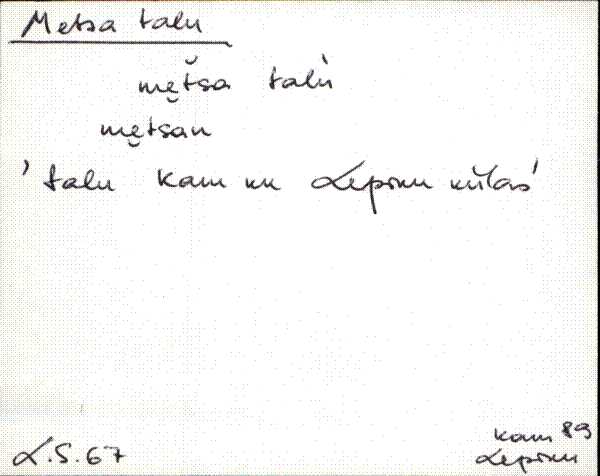 Metsa talu
mę̆tsa talù
mę̆tsan
'talu Kam Lepiku külas'
L.S. 67
Kam 89
Lepiku